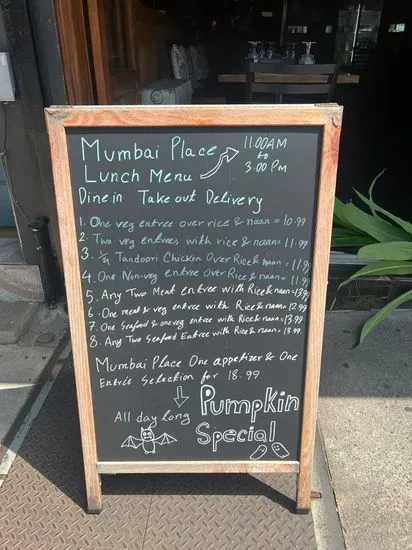 Mumbai Place
Lunch Menu
11:00AM
to
3:00 Pm
Dine in Take out Delivery
1. One veg entree over rice & naan = 10.99
2. Two veg entrees with rice & naan = 11.99
3. 1/4 Tandoori Chicken Over Rice & naan = 11.99
4. One Non-veg entree Over Rice & naan = 11.99
5. Any Two Meat entree with Rice & naan = 13.99
6. One meat & veg entree with Rice & naan = 12.99
7. One Seafood & one veg entree with Rice & naan = 13.99
8. Any Two Seafood Entree with Rice & naan = 13.99
Mumbai Place One appetizer & One
Entrée Selection for 18.99
All day long
Pumpkin
Special